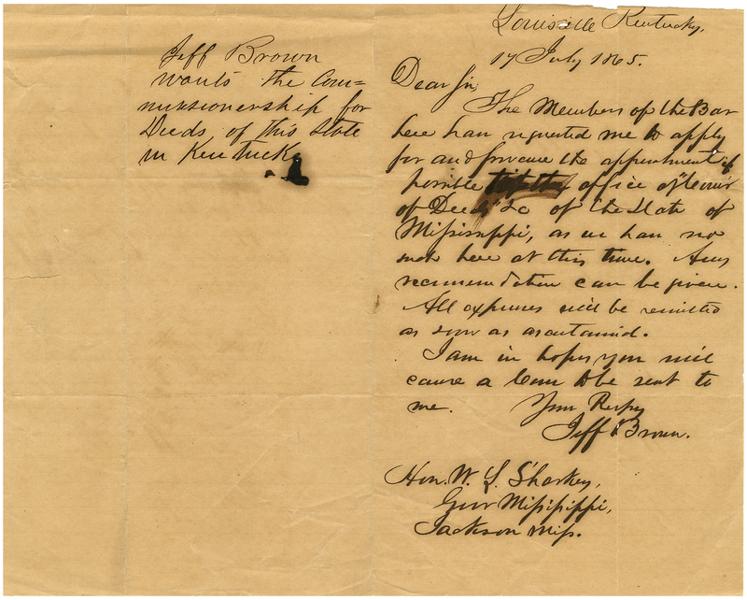 Jeff Brown
wants the Com=
missionership for
Deeds of this State
in Kentucky
Louisville Kentucky,
17 July 1865.
Dear Sir,
The Members of the Bar
here have requested me to apply
for and procure the appointment if
possible office of "Comr
of Deeds" &c of the State of
Mississippi, as we have no
such here at this time. Any
recommendation can be given.
All expenses will be remitted
as soon as ascertained.
I am in hopes you will
cause a Com to be sent to
me. Your Respy
Jeff Brown.
Hon. W. L. Sharkey,
Govr Mississippi,
Jackson Miss.